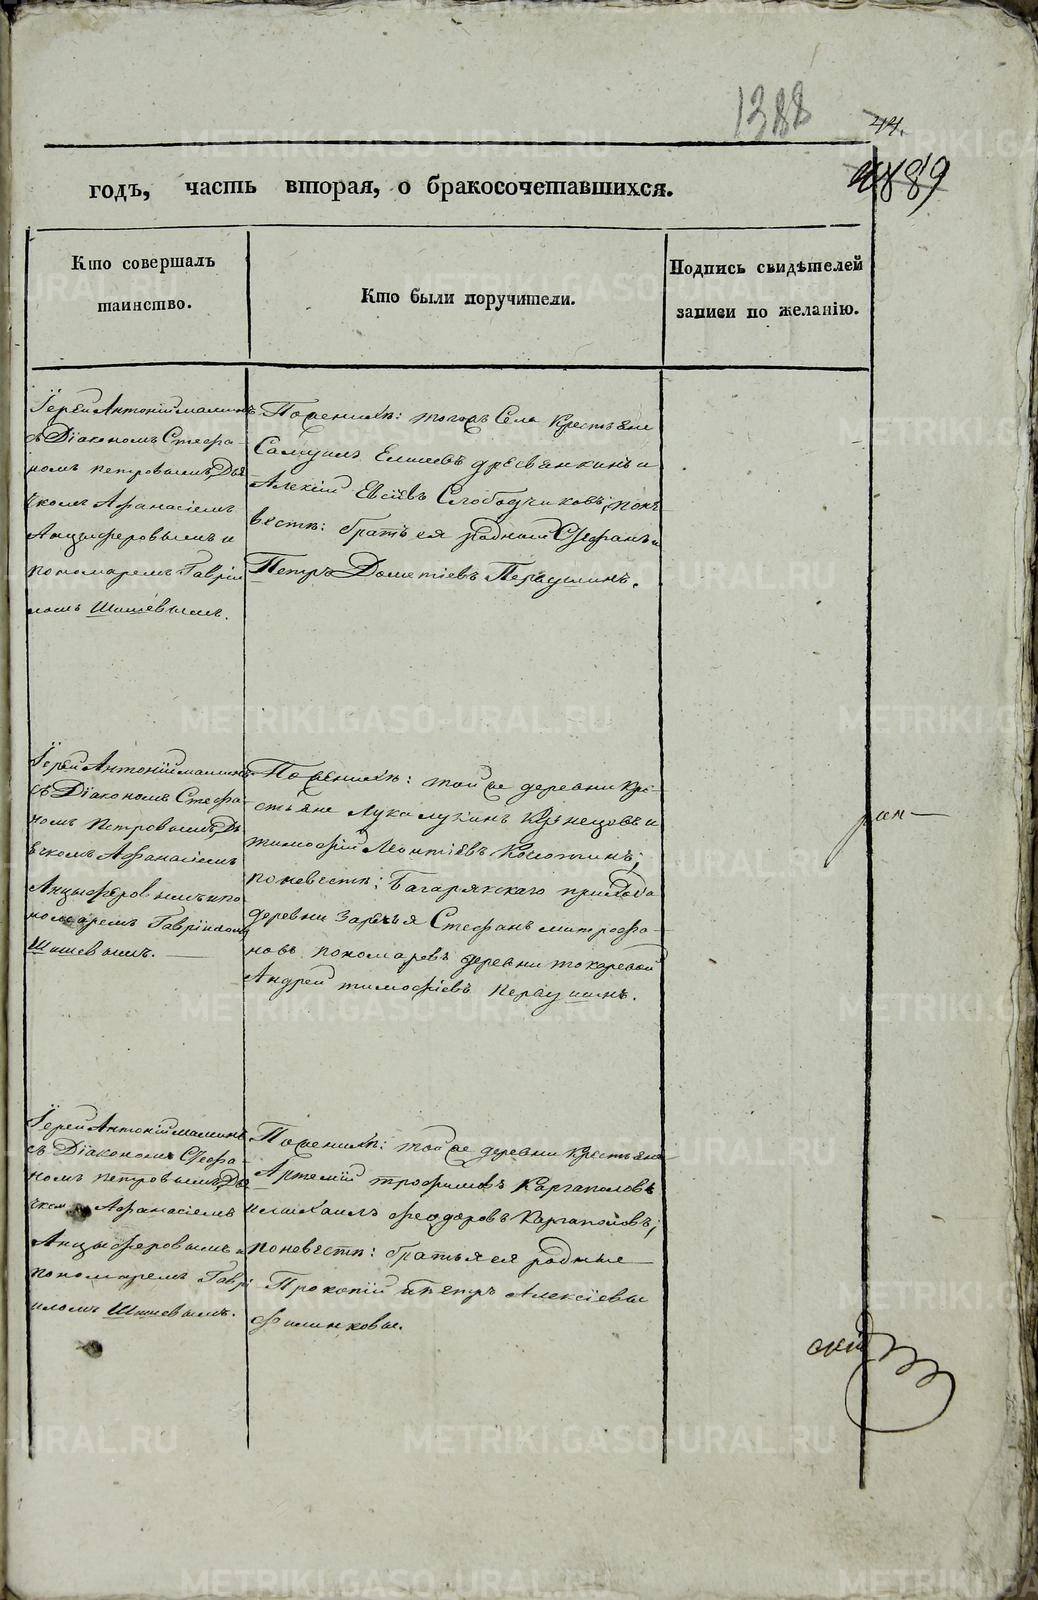 1388
44.
годъ, часть вторая, о бракосочетавшихся.
Кто совершалъ
таинство.
Кто были поручители.
Подпись свидѣтелей
записи по желанію.
Іерей Антоній Маминъ
съ Діакономъ Стефа-
номъ Петровымъ, Дья
чкомъ Афанасіемъ
Анцыферовымъ и
пономаремъ Гаврі
ломъ Шишевымъ.
По женихѣ: тогожъ Села Крестьяне
Самуилъ Елисеевъ Дресвянкинъ и
Алексій Евсіевъ Слободчиковъ; по не
вѣстѣ: братъ ея родный Стефанъ и
Петръ Дометіевъ Первушинъ.
Іерей Антоній Маминъ
съ Діакономъ Стефа-
номъ Петровымъ, Дь
ячкомъ Афанасіемъ
Анцыферовымъ и по
номаремъ Гавріиломъ
Шишевымъ.
По женихѣ: той же деревни Кре-
стьяне Лука Лукинъ Кузнецовъ и
Тимофій Леонтіевъ
по невѣстѣ: Багарякскаго прихода
деревни Зарѣчья Стефанъ Митрофа-
новъ Пономаревъ деревни Токаревой
Андрей Тимофіевъ Первушинъ.
Іерей Антоній Маминъ
съ Діакономъ Стефа-
номъ Петровымъ, Дья
чкомъ Афанасіемъ
Анцыферовымъ и
пономаремъ Гаврі
иломъ Шишевымъ.
По женихѣ: той же деревни Крестьяне
Артемій Трофимовъ Каргаполовъ
и Михаилъ Феодоровъ Каргаполовъ;
по невѣстѣ: братья ея родные
Прокопій и Петръ Алексіевы
Филинковы.
ской
METRIKI.GASO-URAL.RU